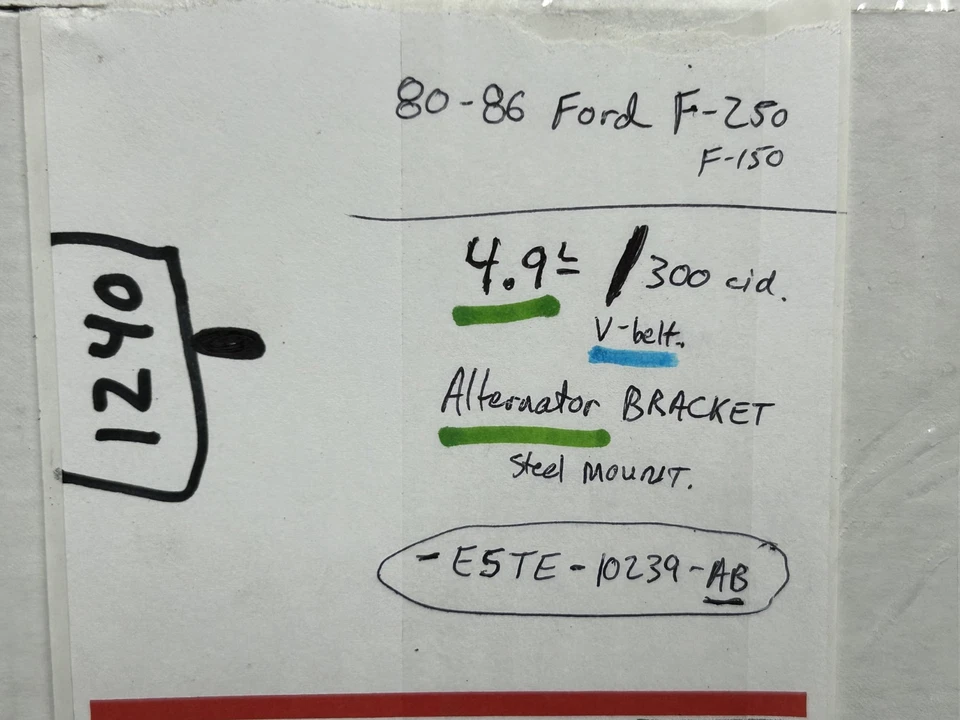 80-86 Ford F-250
F-150
4.9L / 300 cid.
V-belt.
Alternator BRACKET
Steel MOUNT.
- E5TE - 10239 - AB
1240